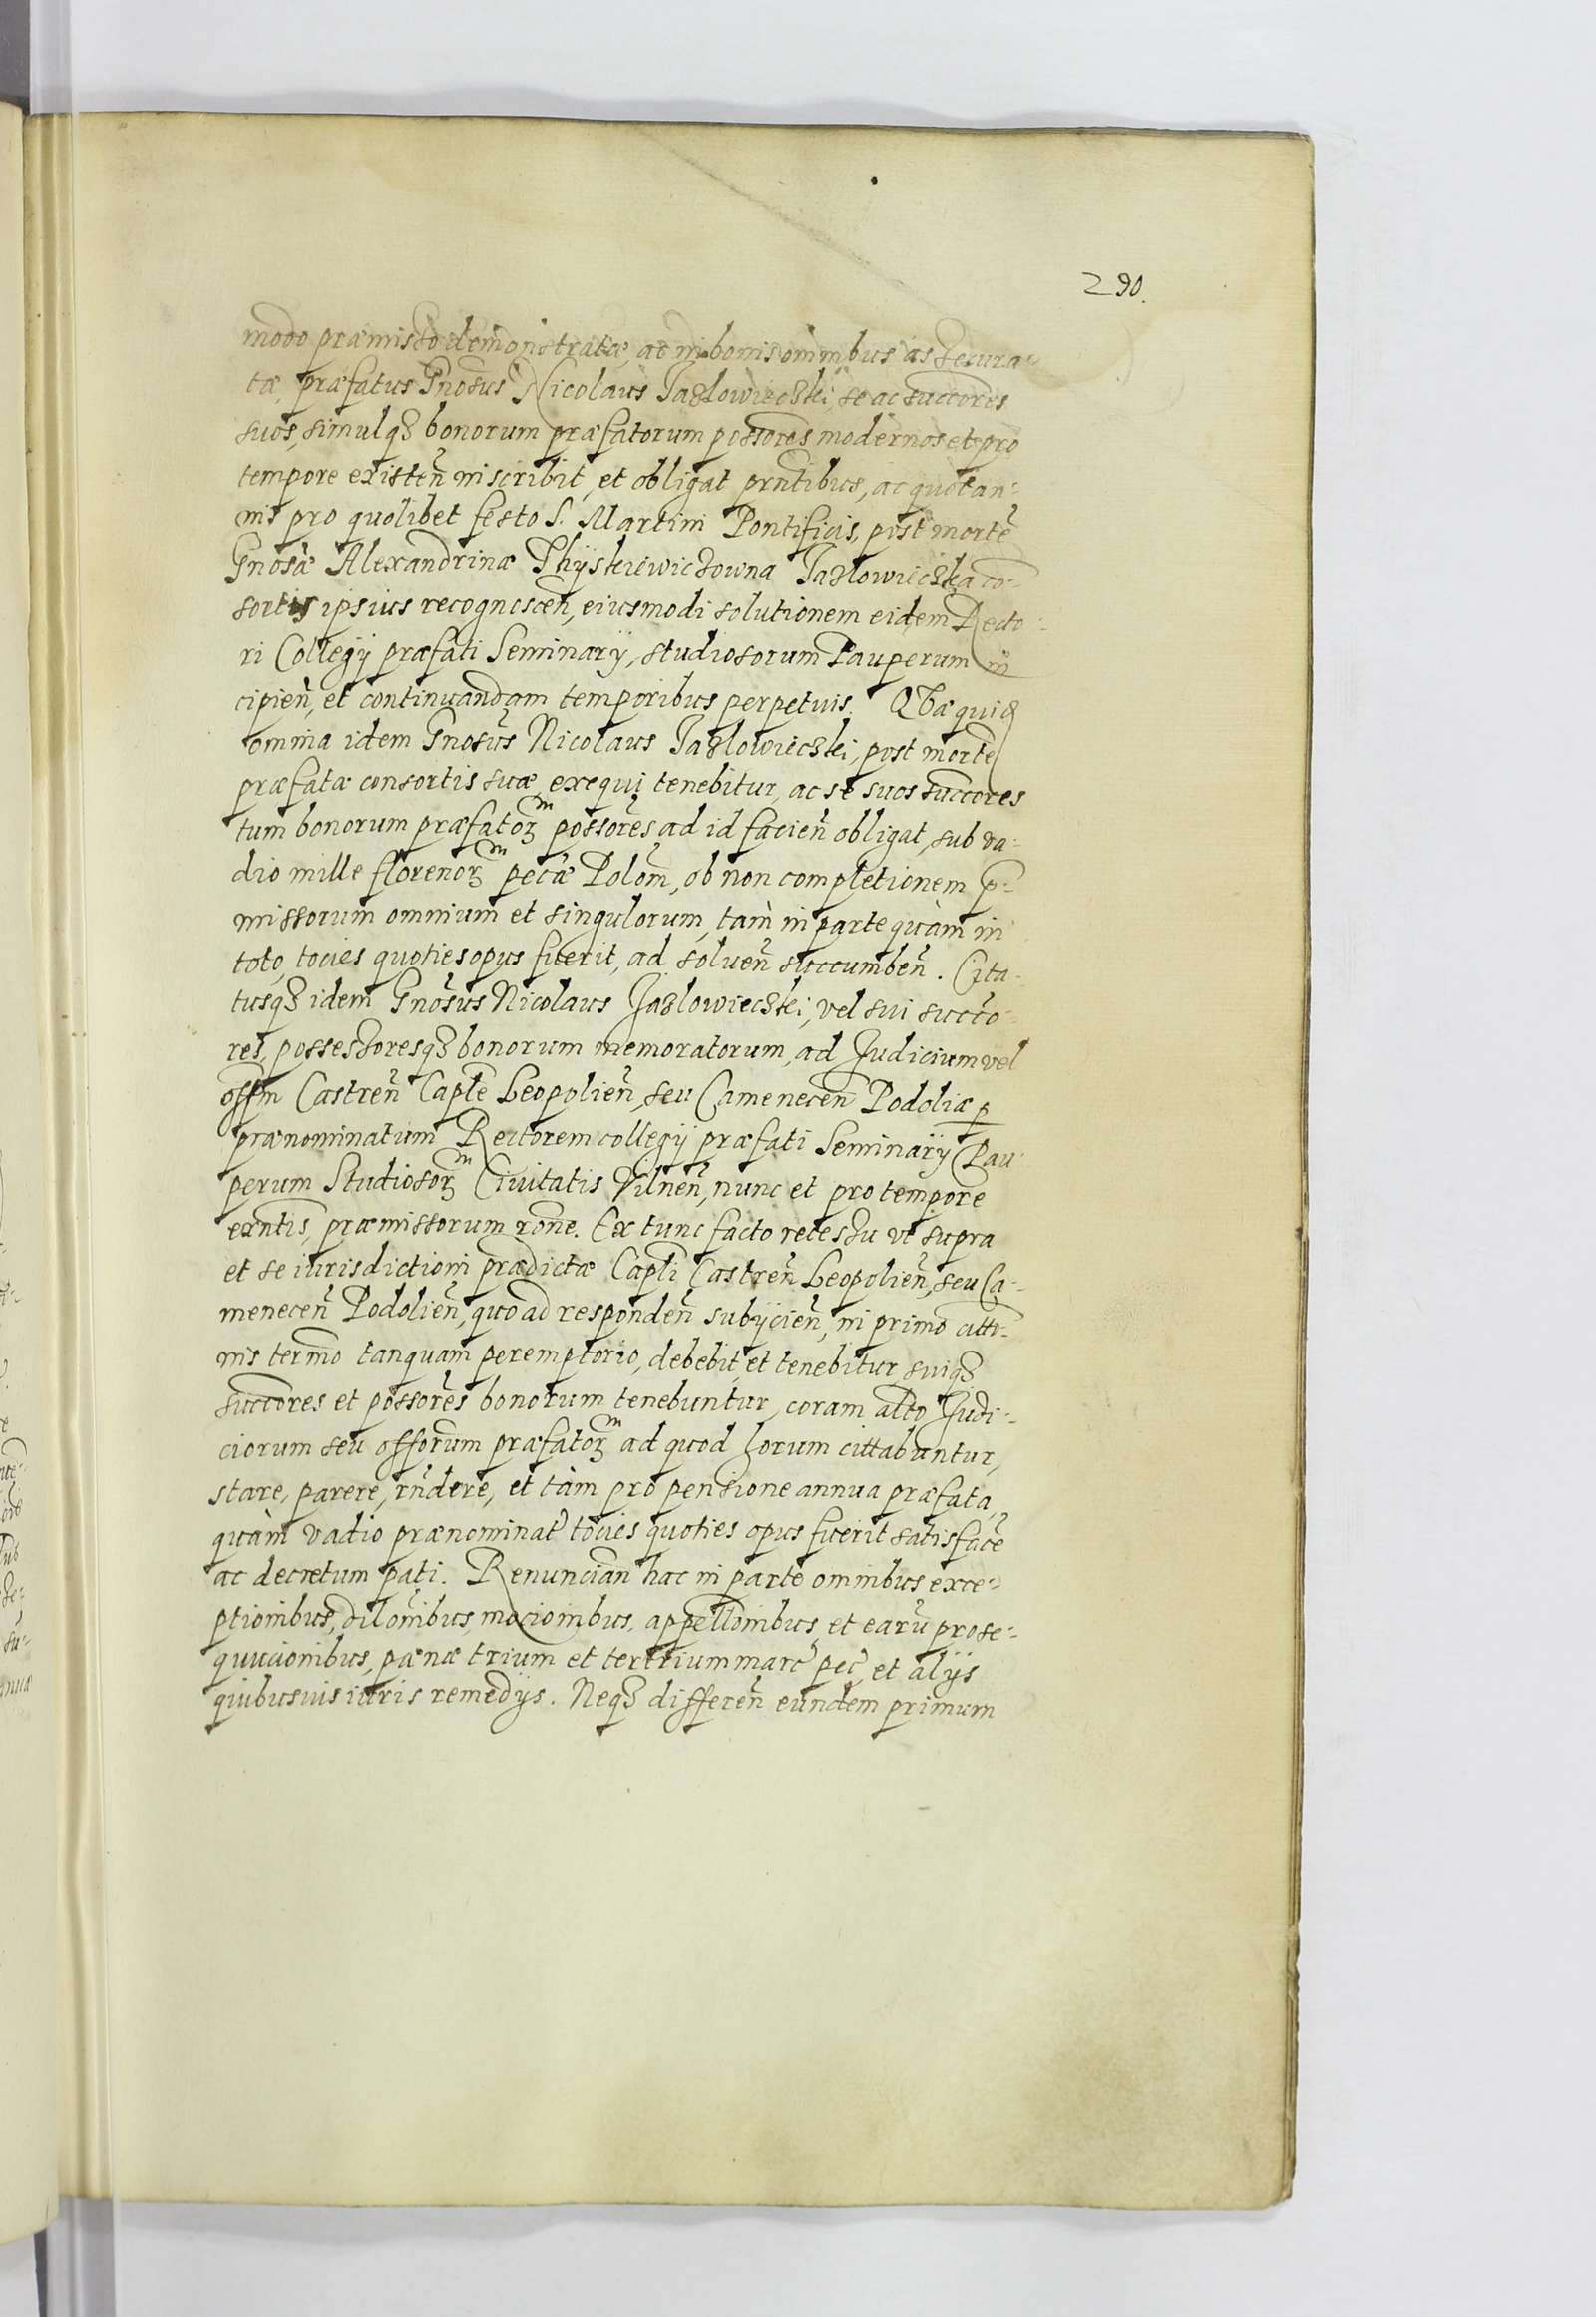 290.
modo præmisso demonstratæ, ac in bonis omnibus assecura-
tæ, præfatus Gnosus Nicolaus Jazlowieczki, se ac succores
suos, simulqз bonorum præfatorum possores modernos et pro
tempore existeñ inscribit, et obligat prntibus, ac quotan-
nis pro quolibet festo S. Martini Pontificis, post mortē
Gnosæ Alexandrinæ Thyskiewiczowna Jazlowieczka co-
sortis ipsius recognosceñ, eiusmodi solutionem eidem Recto-
ri Collegÿ præfati Seminarÿ, studiosorum Pauperum in
cipieñ, et continuandam temporibus perpetuis. Quæ quidē
omnia idem Gnosus Nicolaus Jazlowieczki, post mortē
præfatæ consortis suæ, exequi tenebitur, ac se suos succores
tum bonorum præfatoꝝ possores ad id facieñ obligat, sub va-
dio mille florenoꝝ pecæ Polon, ob non completionem p-
missorum omnium et singulorum, tam in parte quàm in
toto, toties quoties opus fuerit, ad solueñ succumbeñ. Cita-
tusqз idem Gnosus Nicolaus Jazlowieczki, vel sui succo-
res, possessoresqз bonorum memoratorum, ad Judicium vel
offm Castreñ Caple Leopolieñ, seu Camenecen Podoliæ p
prænominatum Rectorem collegÿ præfati Seminarÿ Pau-
perum Studiosoꝝ Ciuitatis Vilneñ, nunc et pro tempore
exntis, præmissorum rone. Ex tunc facto recessu vt supra
et se iurisdictioni prædictæ Capli Castreñ Leopolieñ, seu Ca-
meneceñ Podolieñ, quo ad respondeñ subÿcieñ, in primo citto-
nis termo tanquam peremptorio, debebit et tenebitur, suiqз
succores et possores bonorum tenebuntur, coram alto Judi-
ciorum seu offorum præfatoꝝ ad quod horum cittabuntur,
stare, parere, rndere, et tàm pro pensione annua præfata,
quàm vadio prænominat toties quoties opus fuerit satisfacē
ac decretum pati. Renuncian hac in parte omnibus exce-
ptionibus, dilonibus, mocionibus, appellonibus, et earū prose-
quucionibus, pænæ trium et ter trium marc pec, et alÿs
quibusuis iuris remedÿs. Neqз differeñ eundem primum